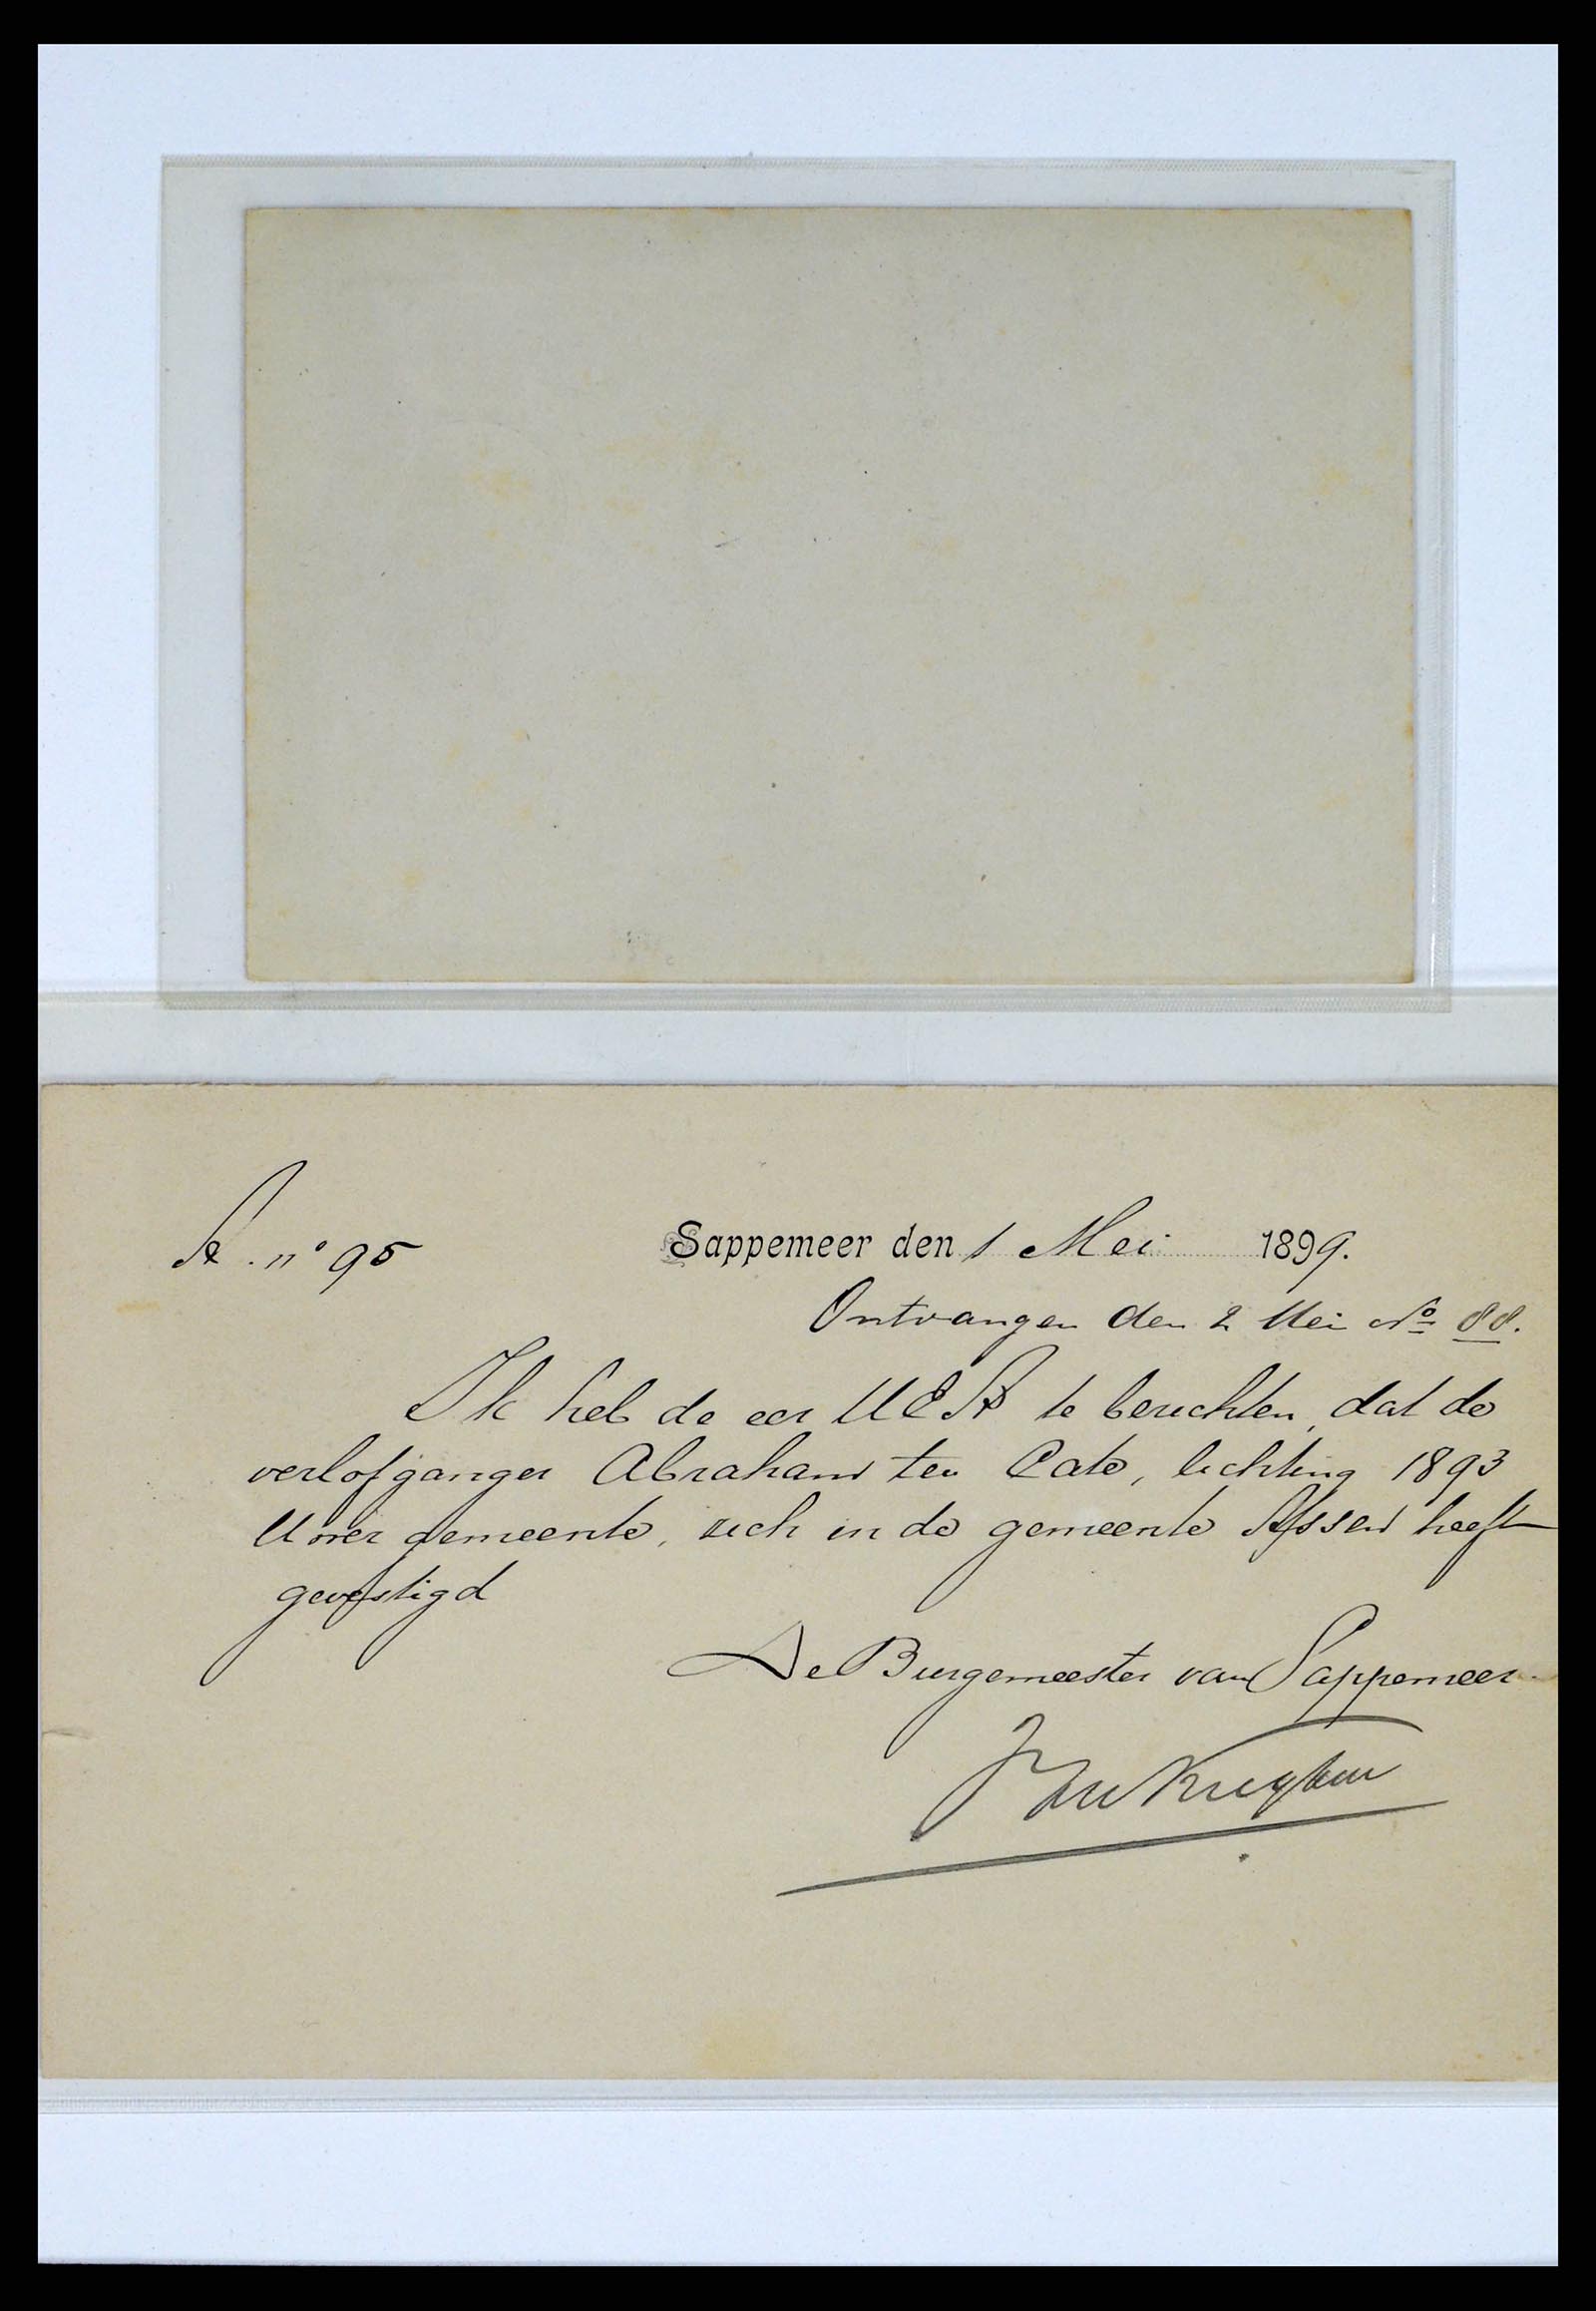 A. n° 95
Sappemeer den 1 Mei 1899.
Ontvangen den 2 Mei No 88.
Ik heb de eer UEA te berichten, dat de
verlofganger Abraham ten Cate, lichting 1893
Uwer gemeente, zich in de gemeente Assen heeft
gevestigd
De Burgemeester van Sappemeer